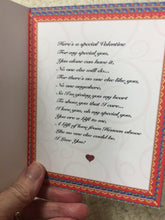 Here's a special Valentine
For my special you,
You alone can have it,
No one else will do...
For there's no one else like you,
No one anywhere,
So I'm giving you my heart
To show you that I care...
I love you, oh my special you,
You are a Gift to me,
A Gift of love from Heaven above
That no one else could be.
I Love You!